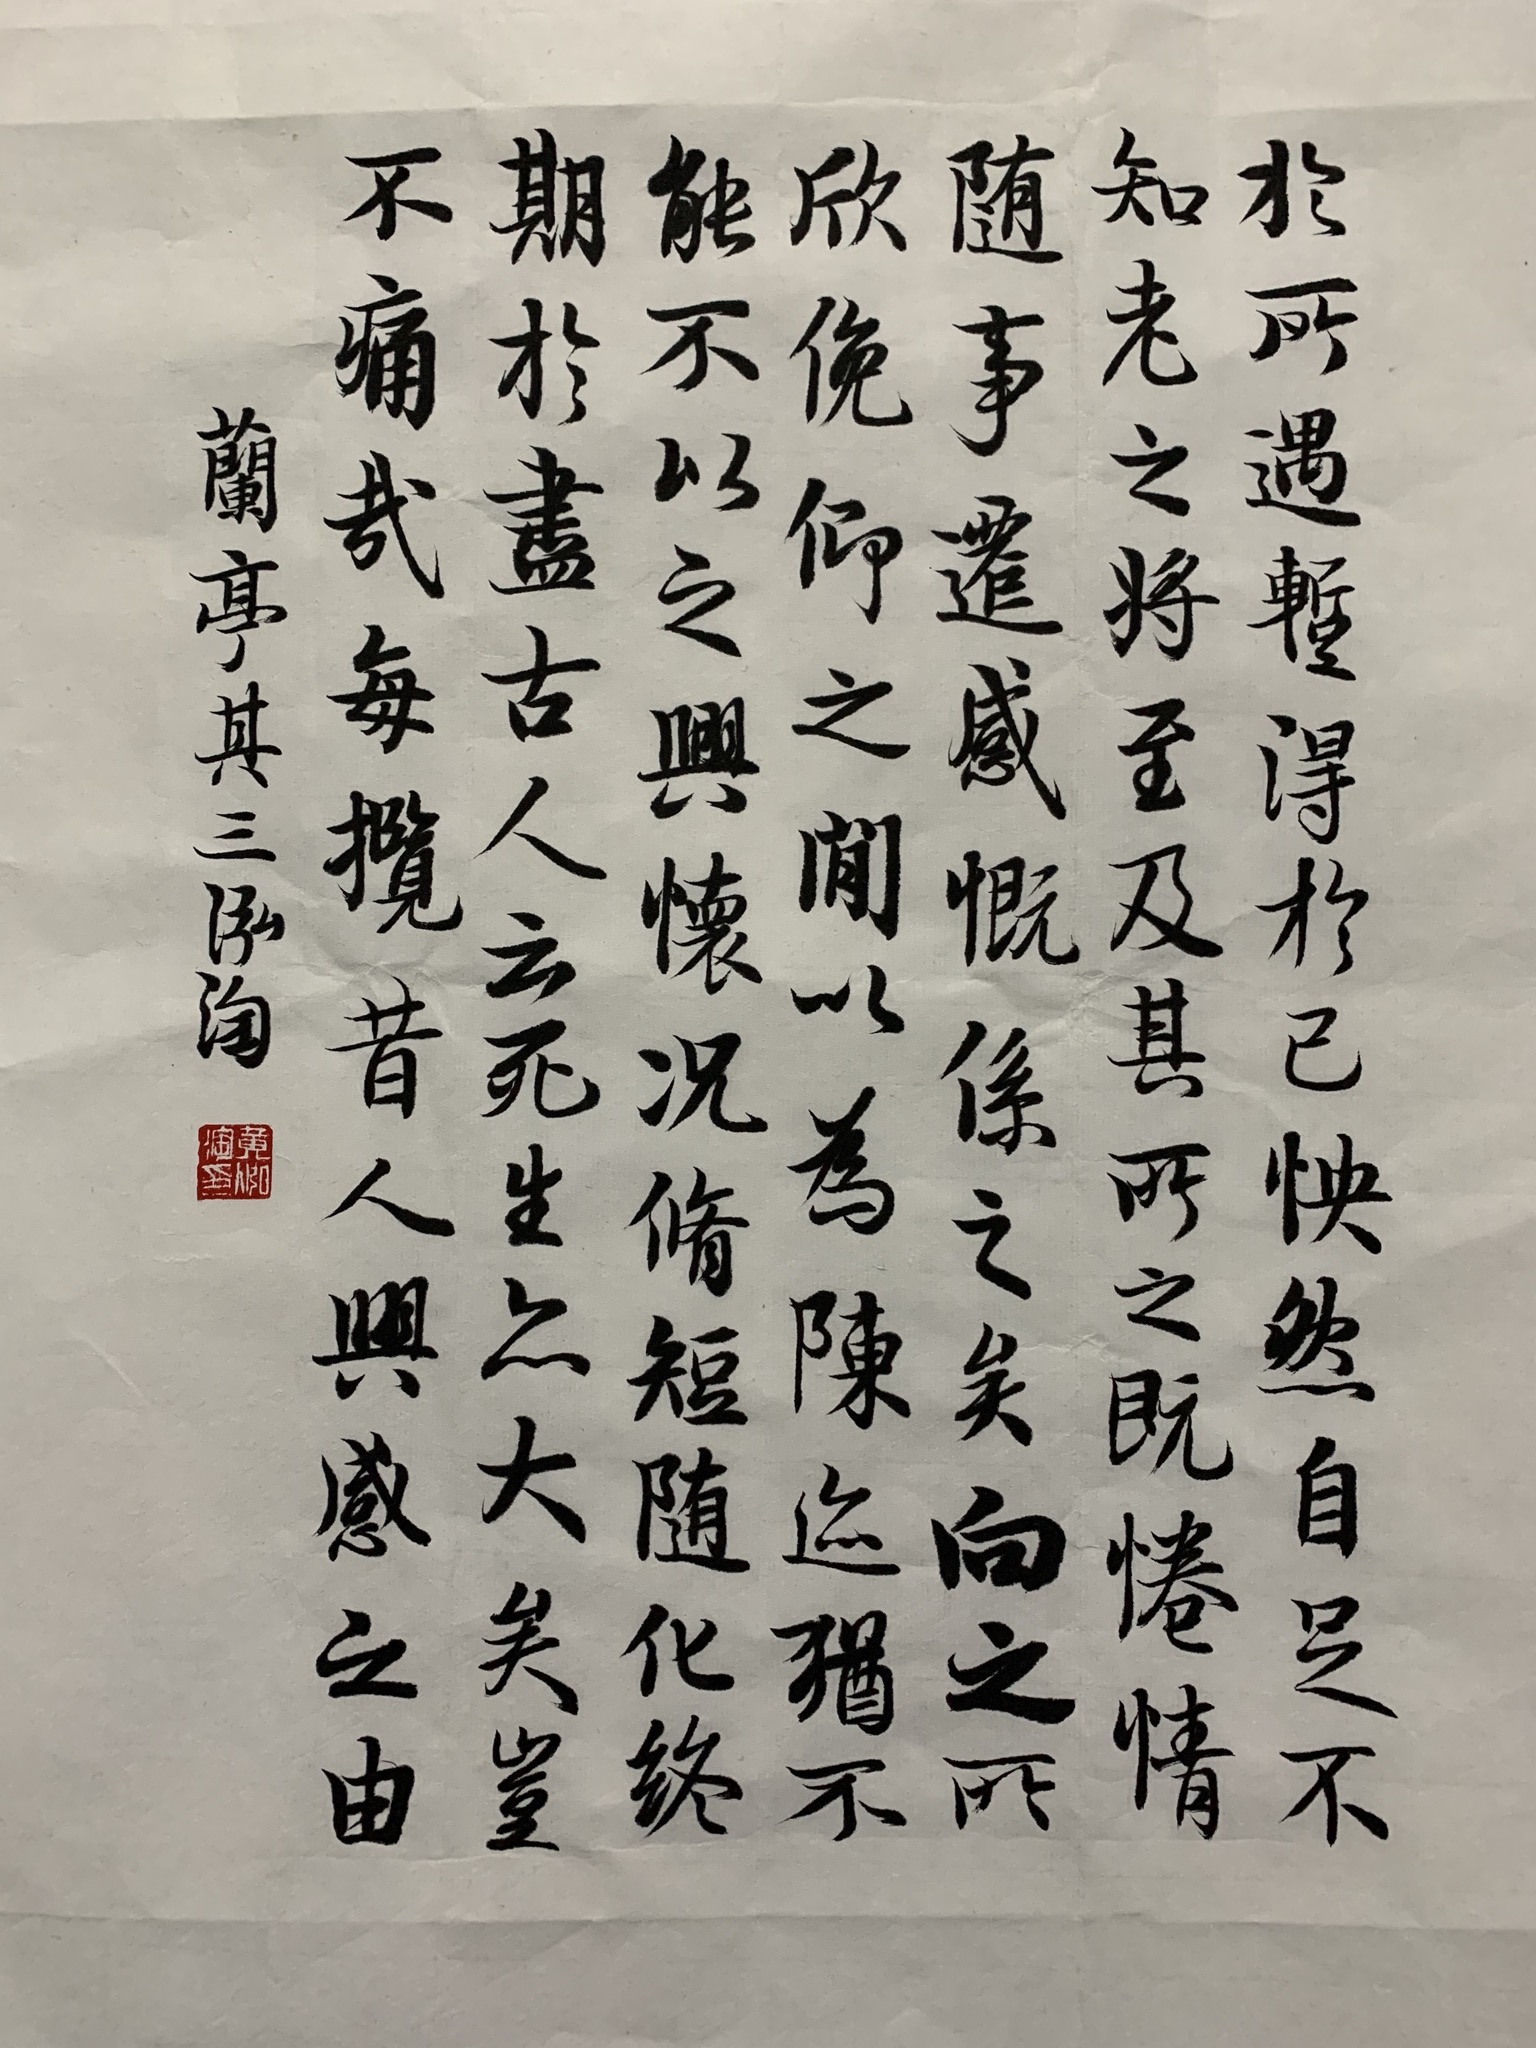 於所遇暫得於己怏然自足不
知老之將至及其所之既惓情
隨事遷感慨係之矣向之所
欣俛仰之閒以為陳迹猶不
能不以之興懷况脩短隨化終
期於盡古人云死生亦大矣豈
不痛哉每攬昔人興感之由
蘭亭其三泓淘